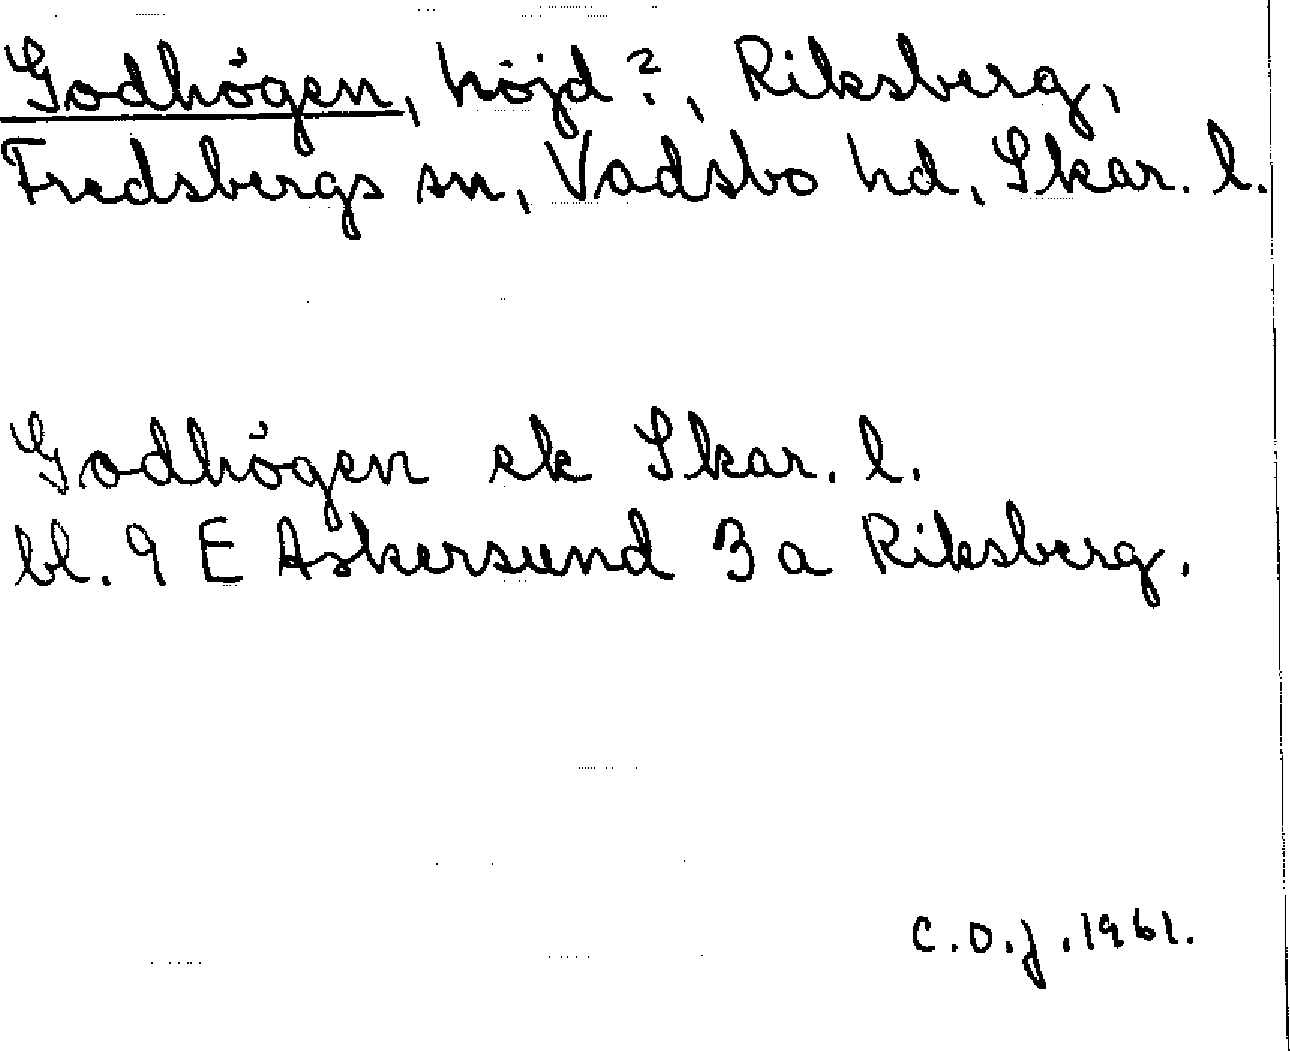 Godhögen, höjd?, Riksberg,
Fredsbergs sn, Vadsbo hd, Skar. l.
Godhögen ek Skar. l.
bl. 9 E Askersund 3 a Riksberg.
C.O.J. 1961.